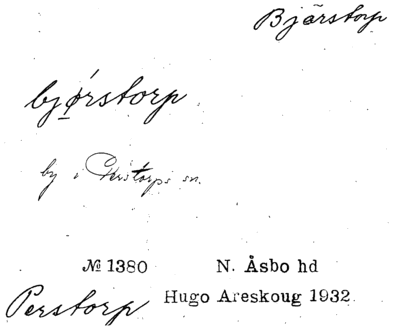 Bjärstorp
bjǿrstorp
by i Perstorps sn.
№ 1380 N. Åsbo hd
Perstorp Hugo Areskoug 1932